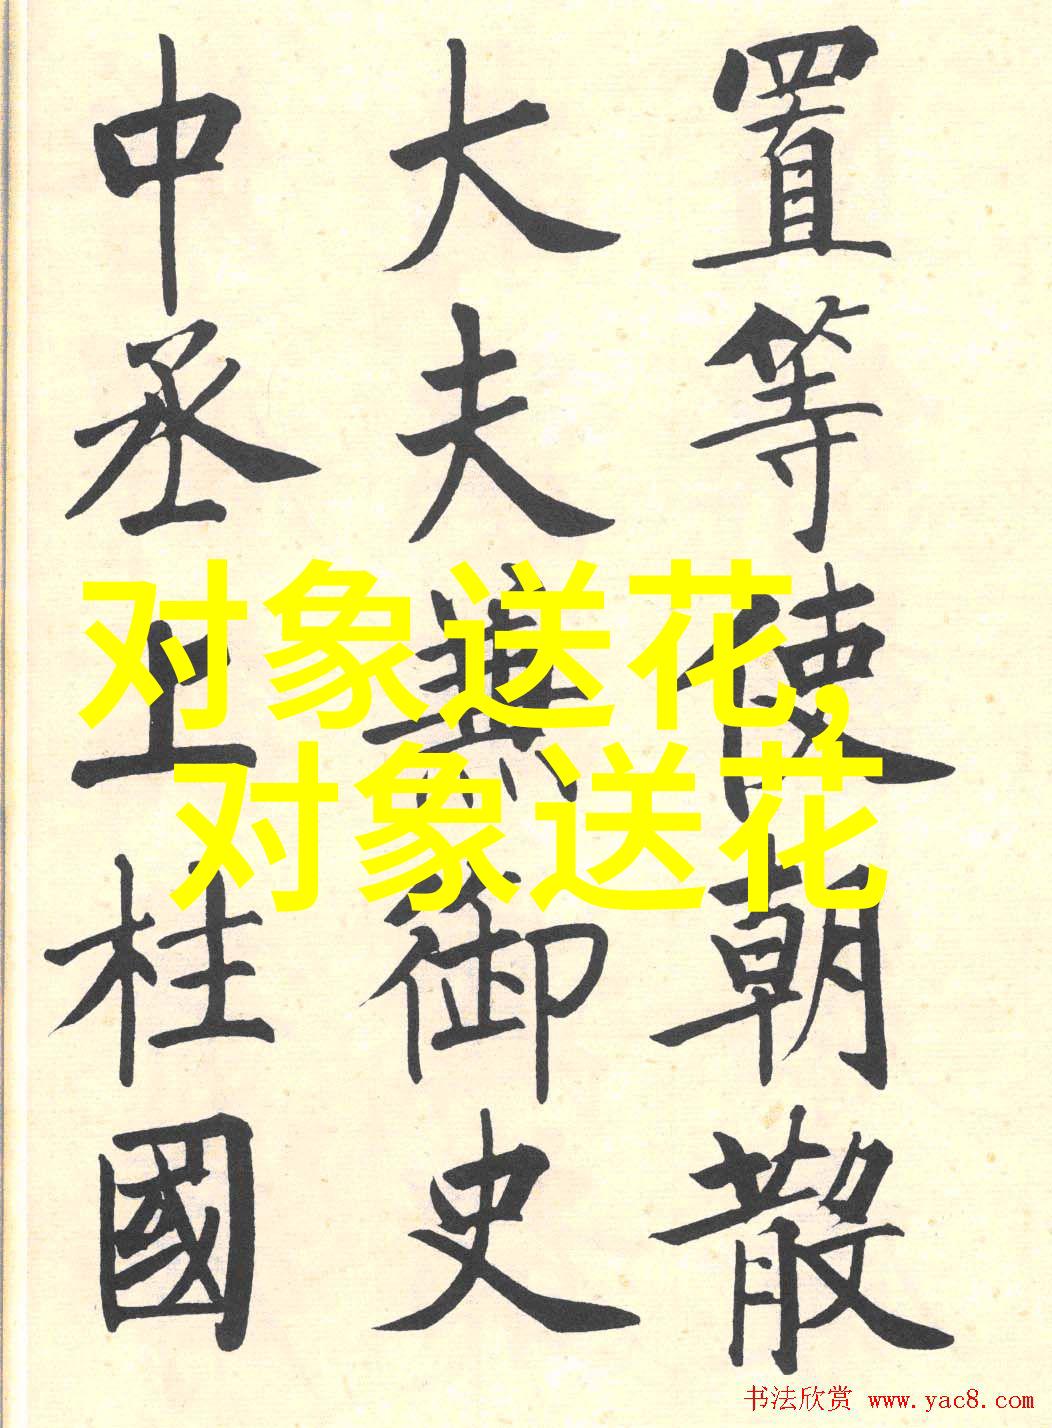 置等使朝散
大夫兼御史
中丞上柱國
对象送花,
对象送花
书法欣赏 www.yac8.com